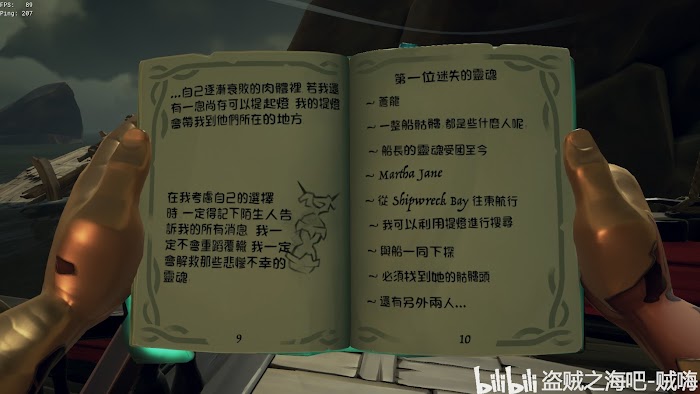 FPS: 89
Ping: 207
...自己逐漸衰敗的肉體裡 若我還
有一息尚存可以提起燈 我的提燈
會帶我到他們所在的地方
在我考慮自己的選擇
時 一定得記下陌生人告
訴我的所有消息 我一
定不會重蹈覆轍 我一定
會解救那些悲慘不幸的
靈魂
9
第一位迷失的靈魂
~ 蒼龍
~ 一整船骷髏 都是些什麼人呢.
~ 船長的靈魂受困至今
~ Martha Jane
~ 從 Shipwreck Bay 往東航行
~ 我可以利用提燈進行搜尋
~ 與船一同下探
~ 必須找到她的骷髏頭
~ 還有另外兩人...
10
bilibili 盗贼之海吧-贼嗨